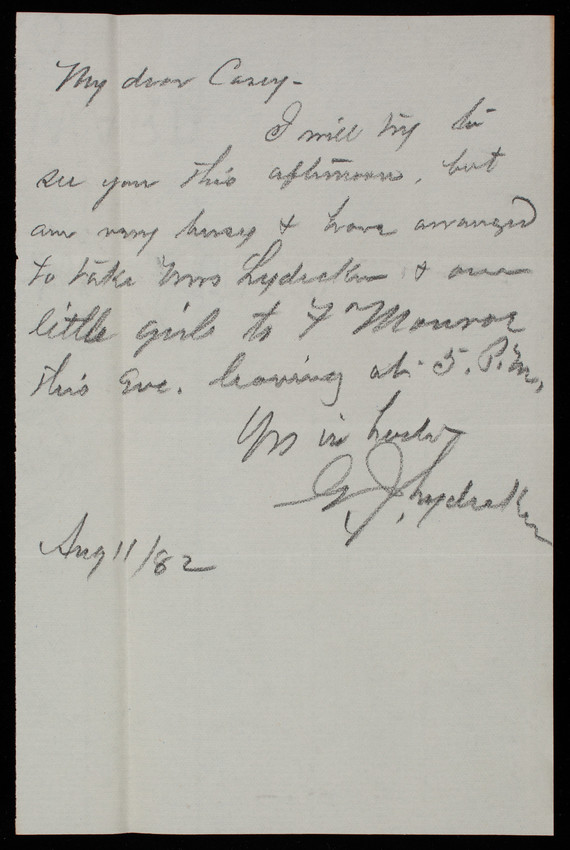 My dear Casey -
I will try to
see you this afternoon, but
am very busy & have arranged
to take Mrs Lydecker & our
little girls to Ft Monroe
this Eve. leaving at 5. P.M,
Yrs in haste
G. J. Lydecker
Aug 11/82